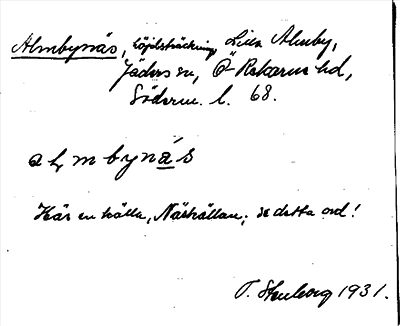 Almbynäs, höjdsträckning, Lilla Almby,
Jäders sn, Ö-Rekarne hd,
Söderm. l. 68.
almbynás
Här en källa, Näskällan; se detta ord!
T. Stenborg 1931.